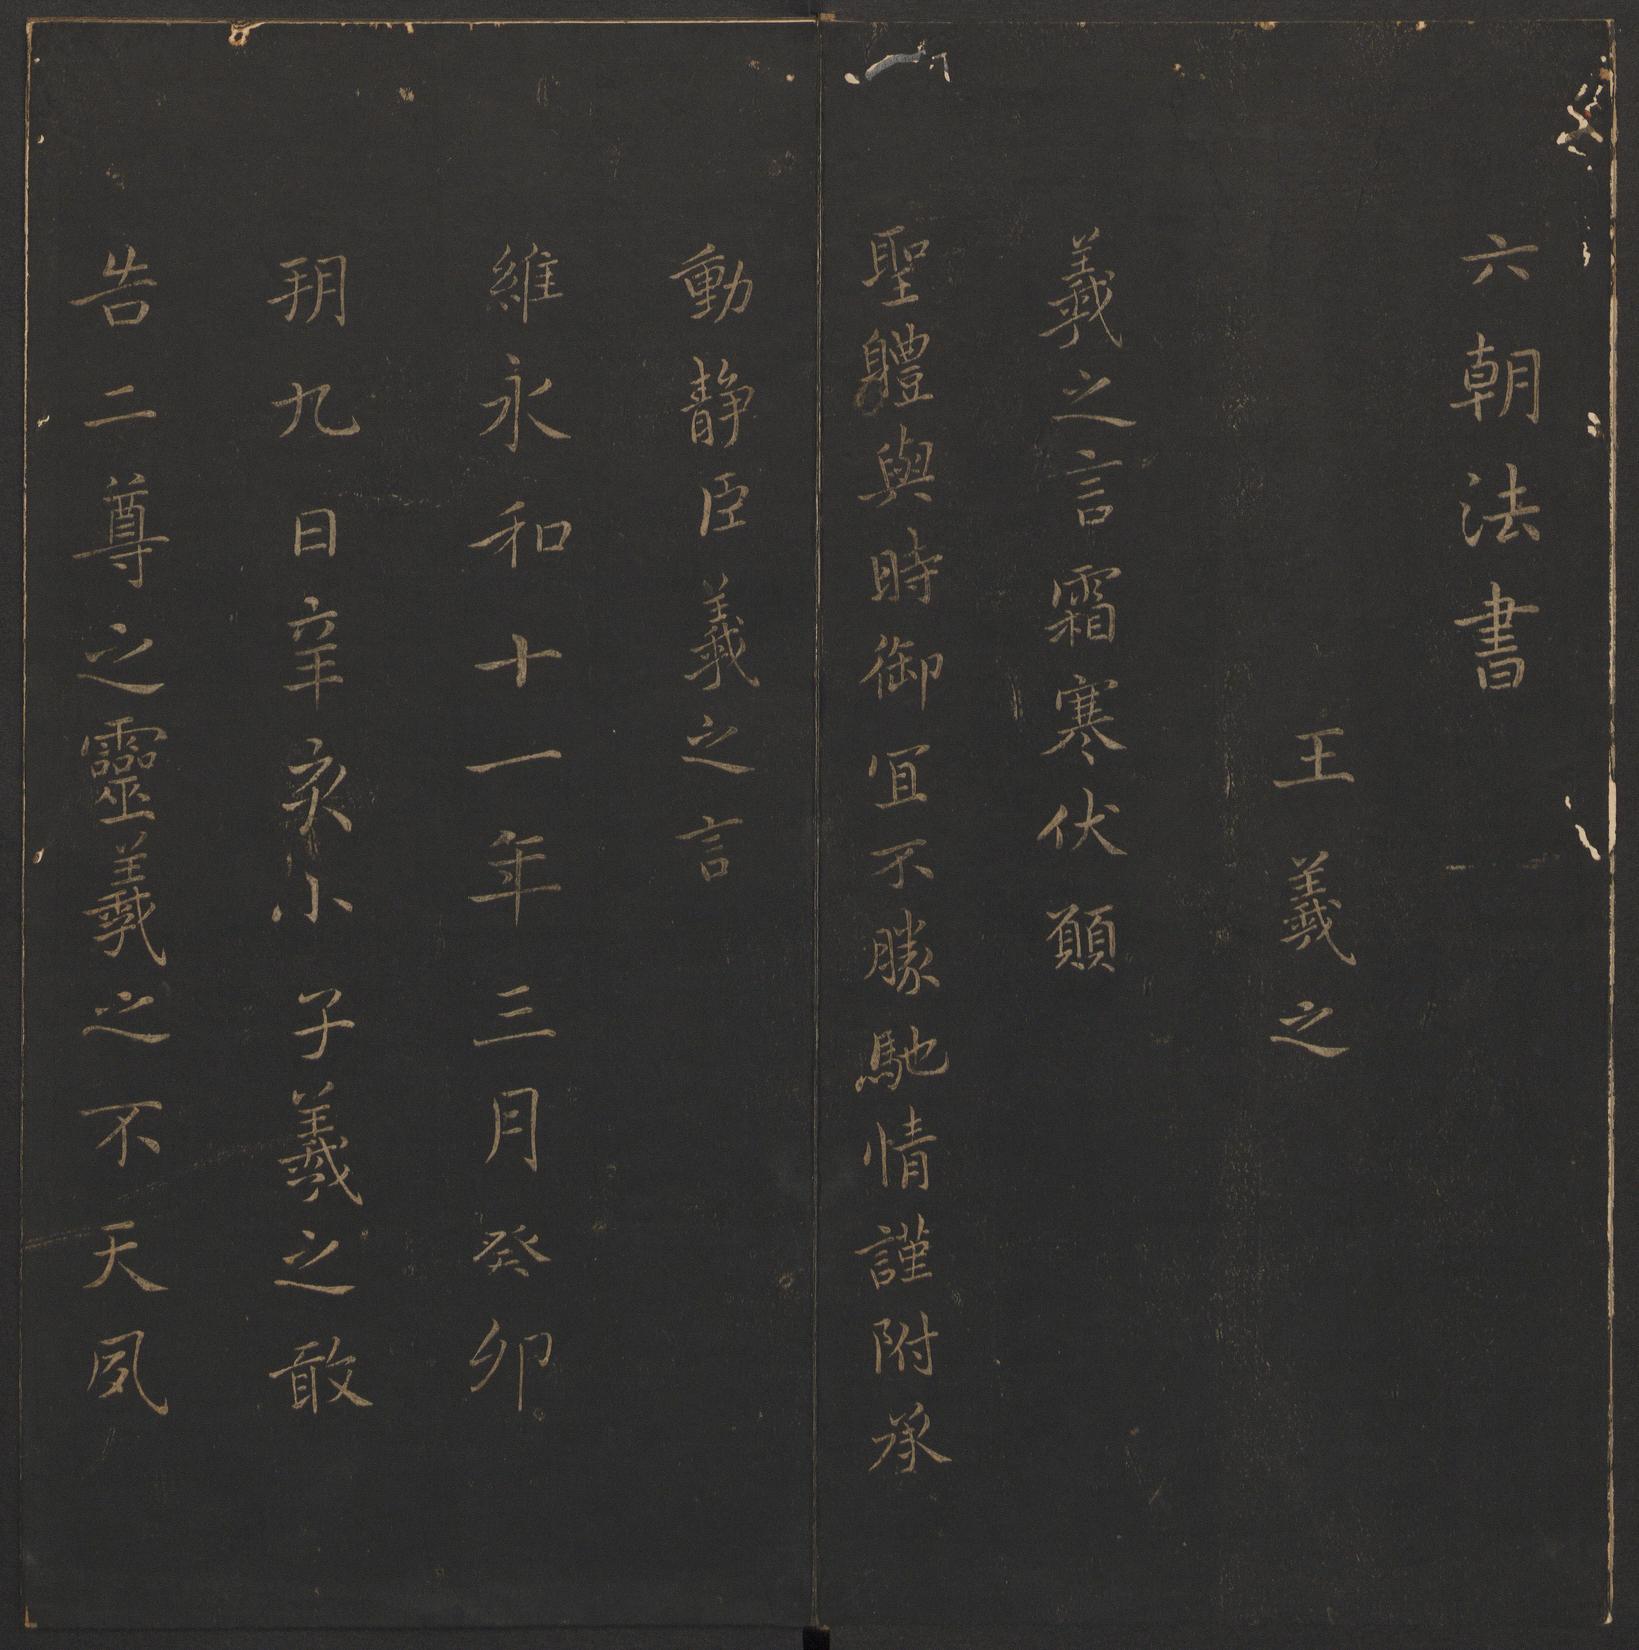 六朝法書
王羲之
羲之言霜寒伏願
聖體與時御宜不勝馳情謹附承
動靜臣羲之言
維永和十一年三月癸卯
朔九日辛亥小子羲之敢
告二尊之靈羲之不天夙